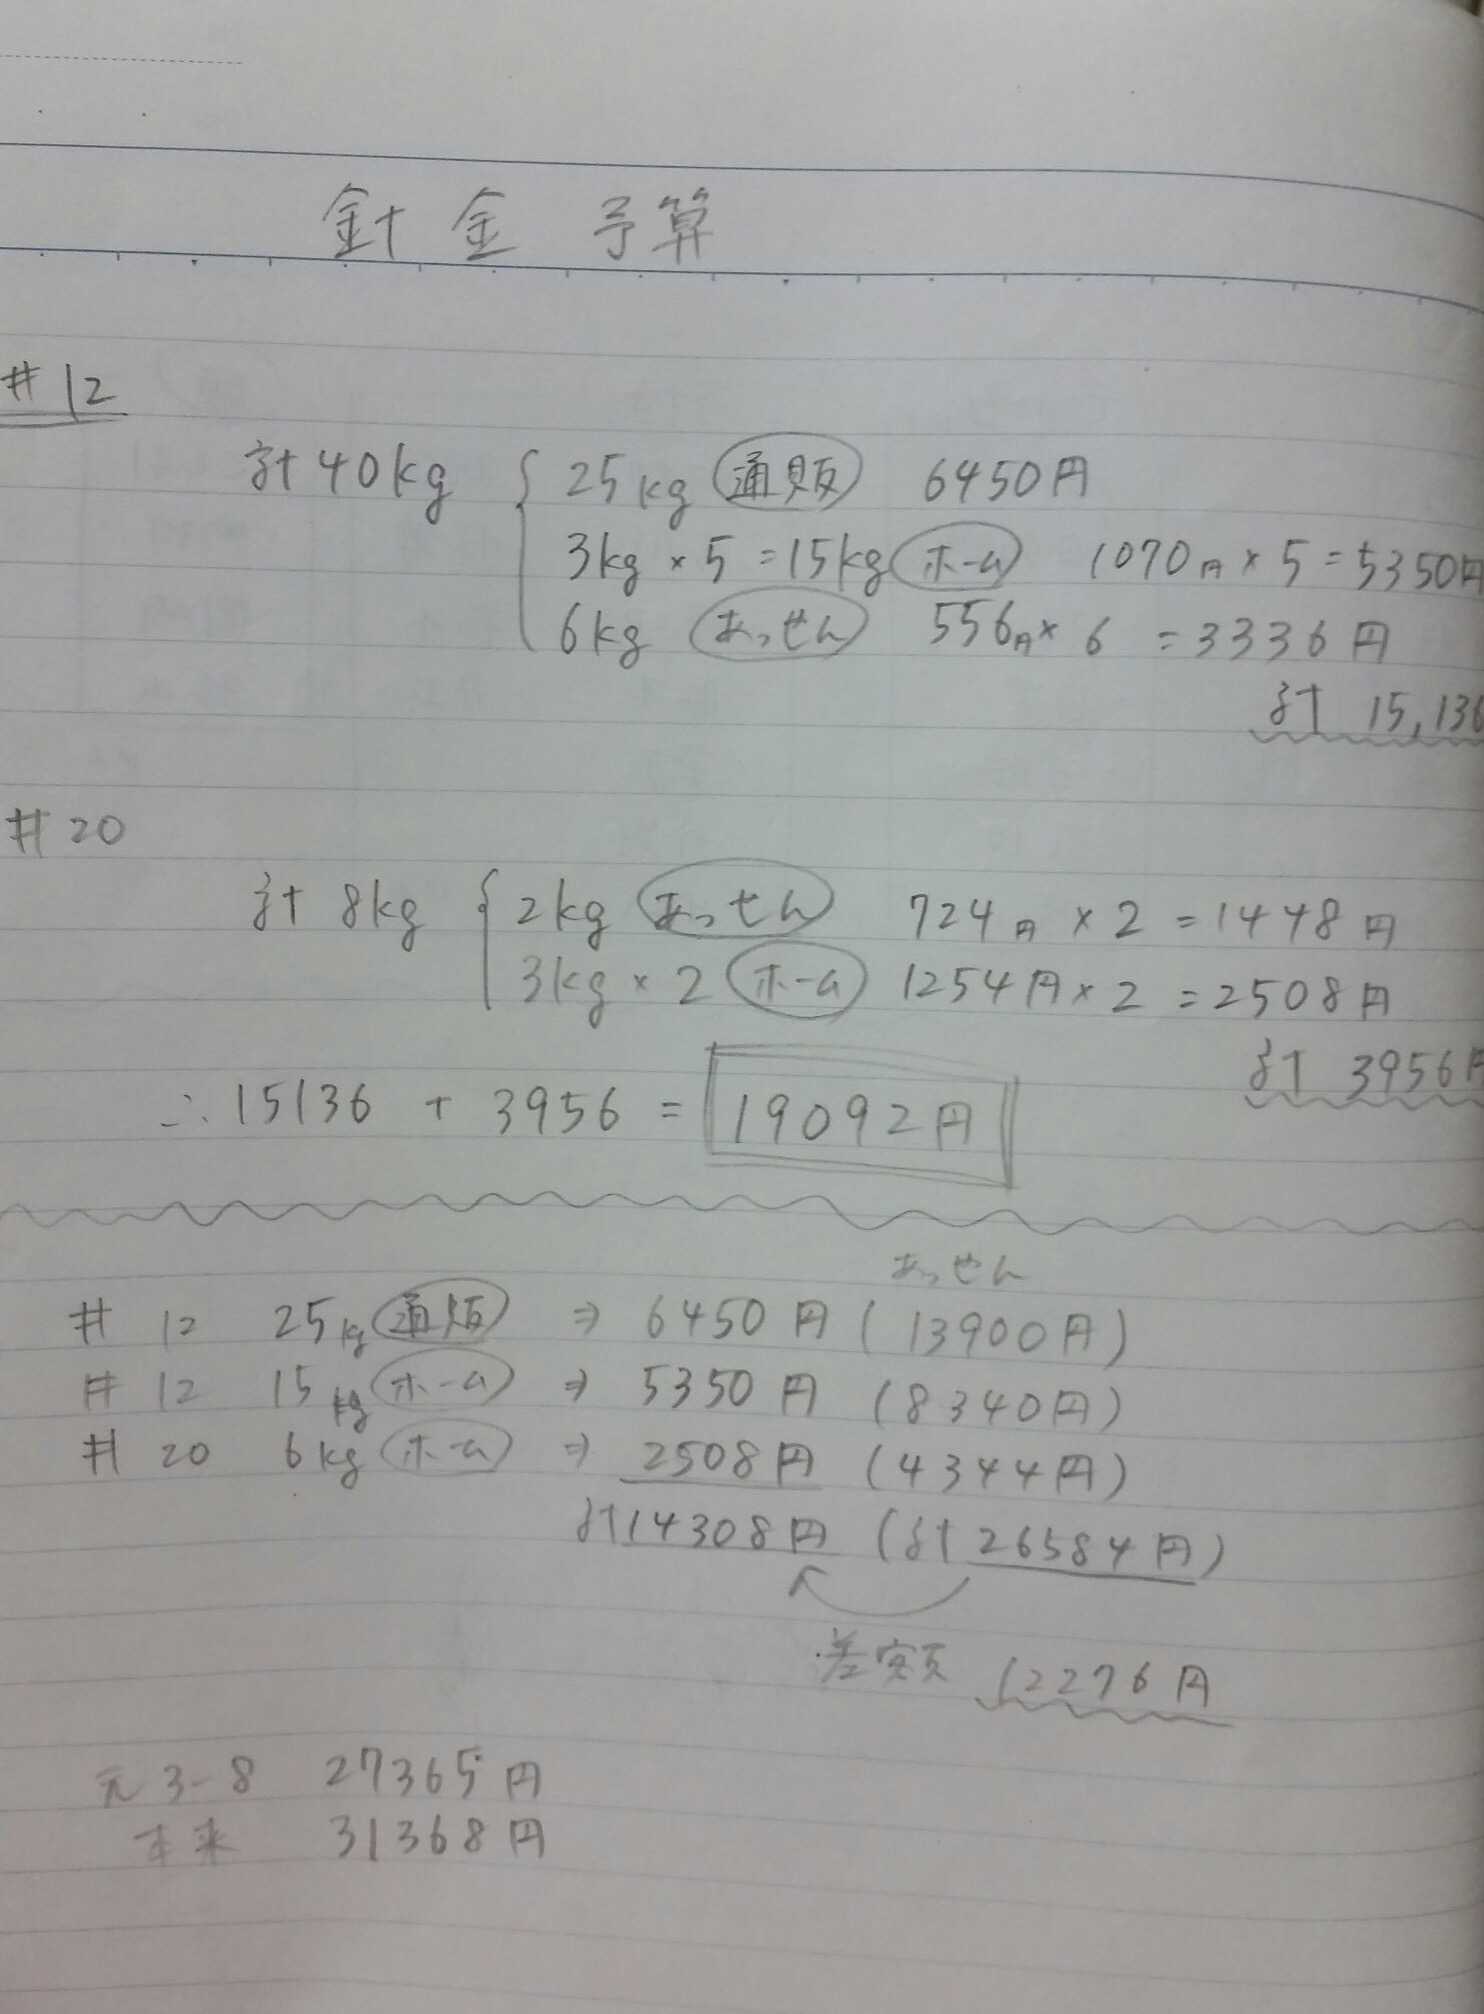 針金 予算
#12
計40kg 25kg 通販 6450円
3kg×5=15kg ホーム 1070円×5=5350円
6kg あっせん 556円×6=3336円
計 15,136
#20
計 8kg 2kg あっせん 724円×2=1448円
3kg×2 ホーム 1254円×2=2508円
計 3956円
∴15136+3956=19092円
あっせん
#12 25kg 通販 ⇒ 6450円(13900円)
#12 15kg ホーム ⇒ 5350円(8340円)
#20 6kg ホーム ⇒ 2508円(4344円)
計14308円(計26584円)
差額 12276円
元3-8 27365円
本来 31368円